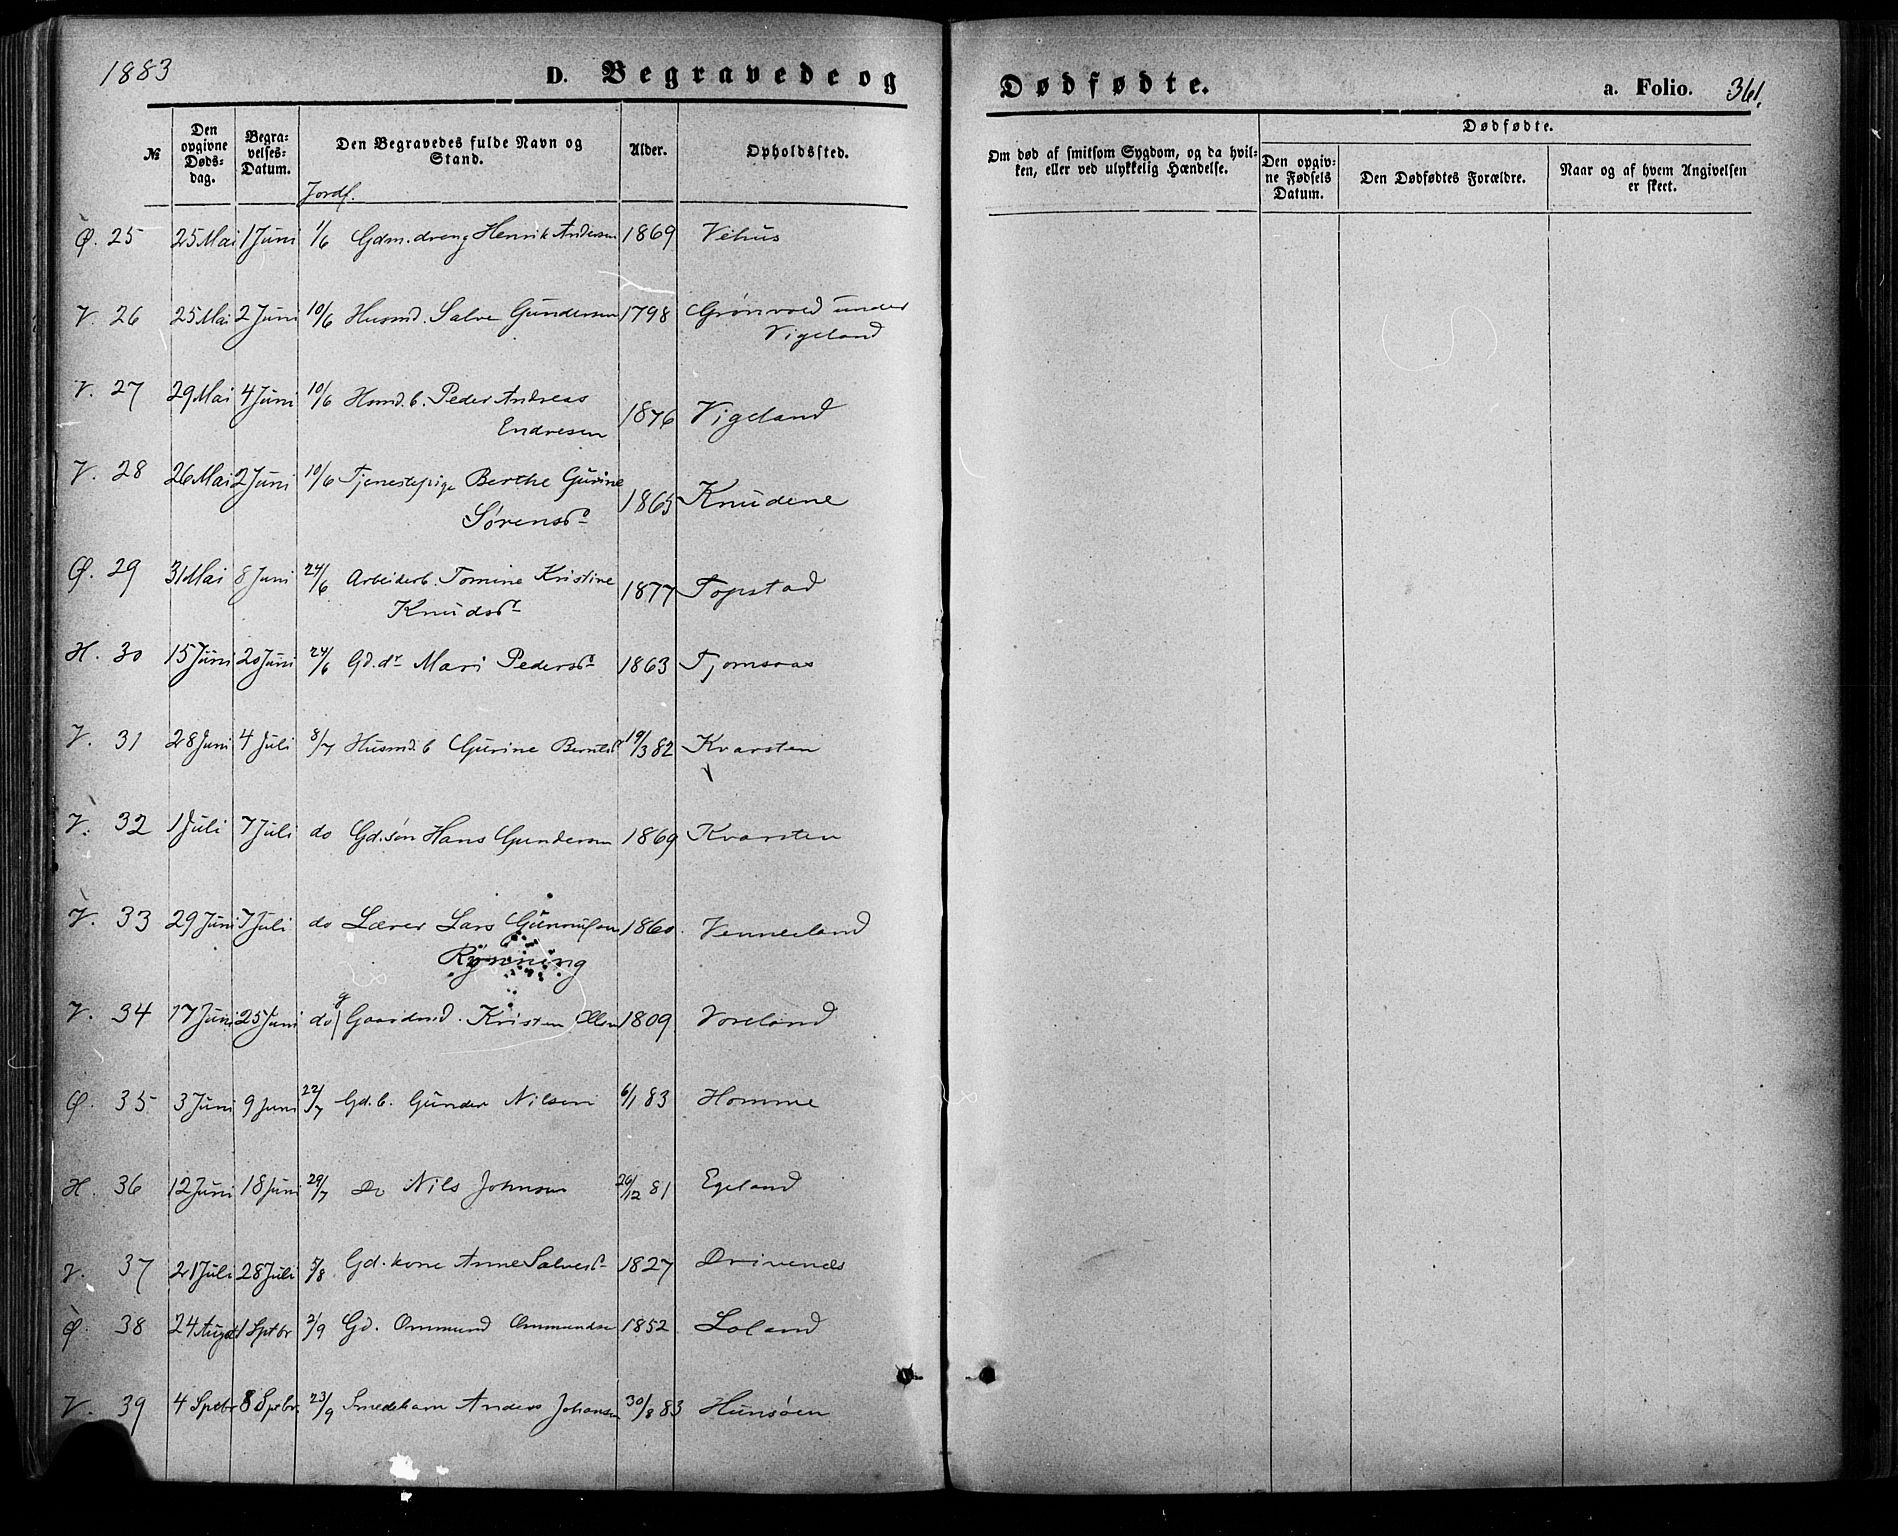 1883
D. Begravede og
Dødfødte.
a. Folio. 361.
№
Den opgivne Døds-dag.
Begra-velses-Datum.
Den Begravedes fulde Navn og Stand.
Jordf.
Alder.
Opholdssted.
Om død af smitsom Sygdom, og da hvil-ken, eller ved ulykkelig Hændelse.
Dødfødte.
Den opgiv-ne Fødsels Datum.
Den Dødfødtes Forældre.
Naar og af hvem Angivelsen er skeet.
Ø. 25 25 Mai 1 Juni 1/6 Gdm. dreng Henrik Andersen 1869 Vehus
V. 26 25 Mai 2 Juni 10/6 Husmd. Salve Gundersen 1798 Grønvold under
Vigeland
V. 27 29 Mai 4 Juni 10/6 Husmd. b. Peder Andreas
Endresen 1876 Vigeland
V. 28 26 Mai 2 Juni 10/6 Tjenestepige Berthe Gurine
Sørensdr 1865 Knudene
Ø. 29 31 Mai 8 Juni 24/6 Arbeiderb. Tomine Kristine
Knudsdr 1877 Topstad
H. 30 15 Juni 20 Juni 24/6 Gd. dr Mari Pedersdr 1863 Tjomsaas
V. 31 28 Juni 4 Juli 8/7 Husmd. b Gurine Berntsdr 19/3 82 Kvarsten
V. 32 1 Juli 7 Juli do Gd. søn Hans Gundersen 1869 Kvarsten
V. 33 29 Juni 7 Juli do Lærer Lars Gunnufsen 1860. Venneland
Rynning
V. 34 17 Juni 25 Juni do Gaardmd. Kristen Olsen 1809 Voreland
Ø. 35 3 Juni 9 Juni 22/7 Gd. b. Gunder Nilsen 6/1 83 Homme
H. 36 12 Juni 18 Juni 29/7 Do Nils Johnsen 26/12 81 Egeland
V. 37 21 Juli 28 Juli 5/8 Gd. kone Anne Salvesdr 1827 Drivenes
Ø. 38 24 Augst 1 Sptbr 2/9 Gd. Ommund Ommundsen 1852 Loland
V. 39 4 Sptbr 8 Sptbr. 23/9 Smedebarn Anders Johansen 30/8 83 Hunsøen